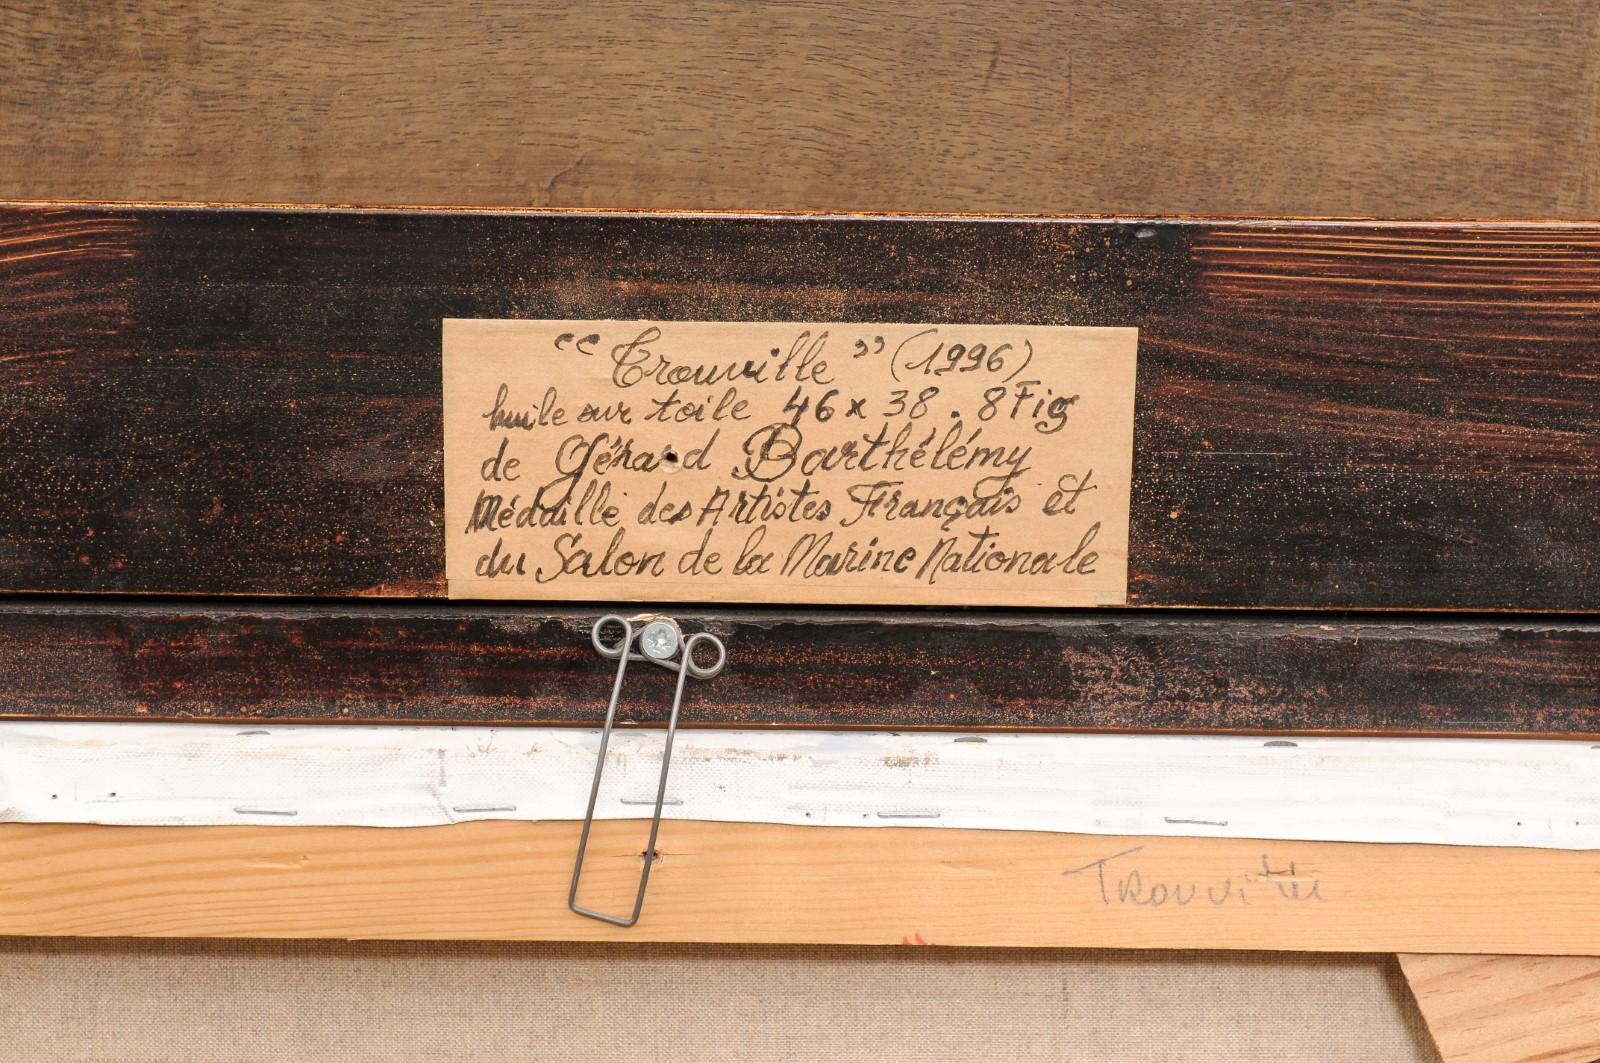 “Trouville” (1996)
huile sur toile 46 x 38. 8 Fig
de Gérard Barthélémy
Médaille des Artistes Français et
du Salon de la Marine Nationale